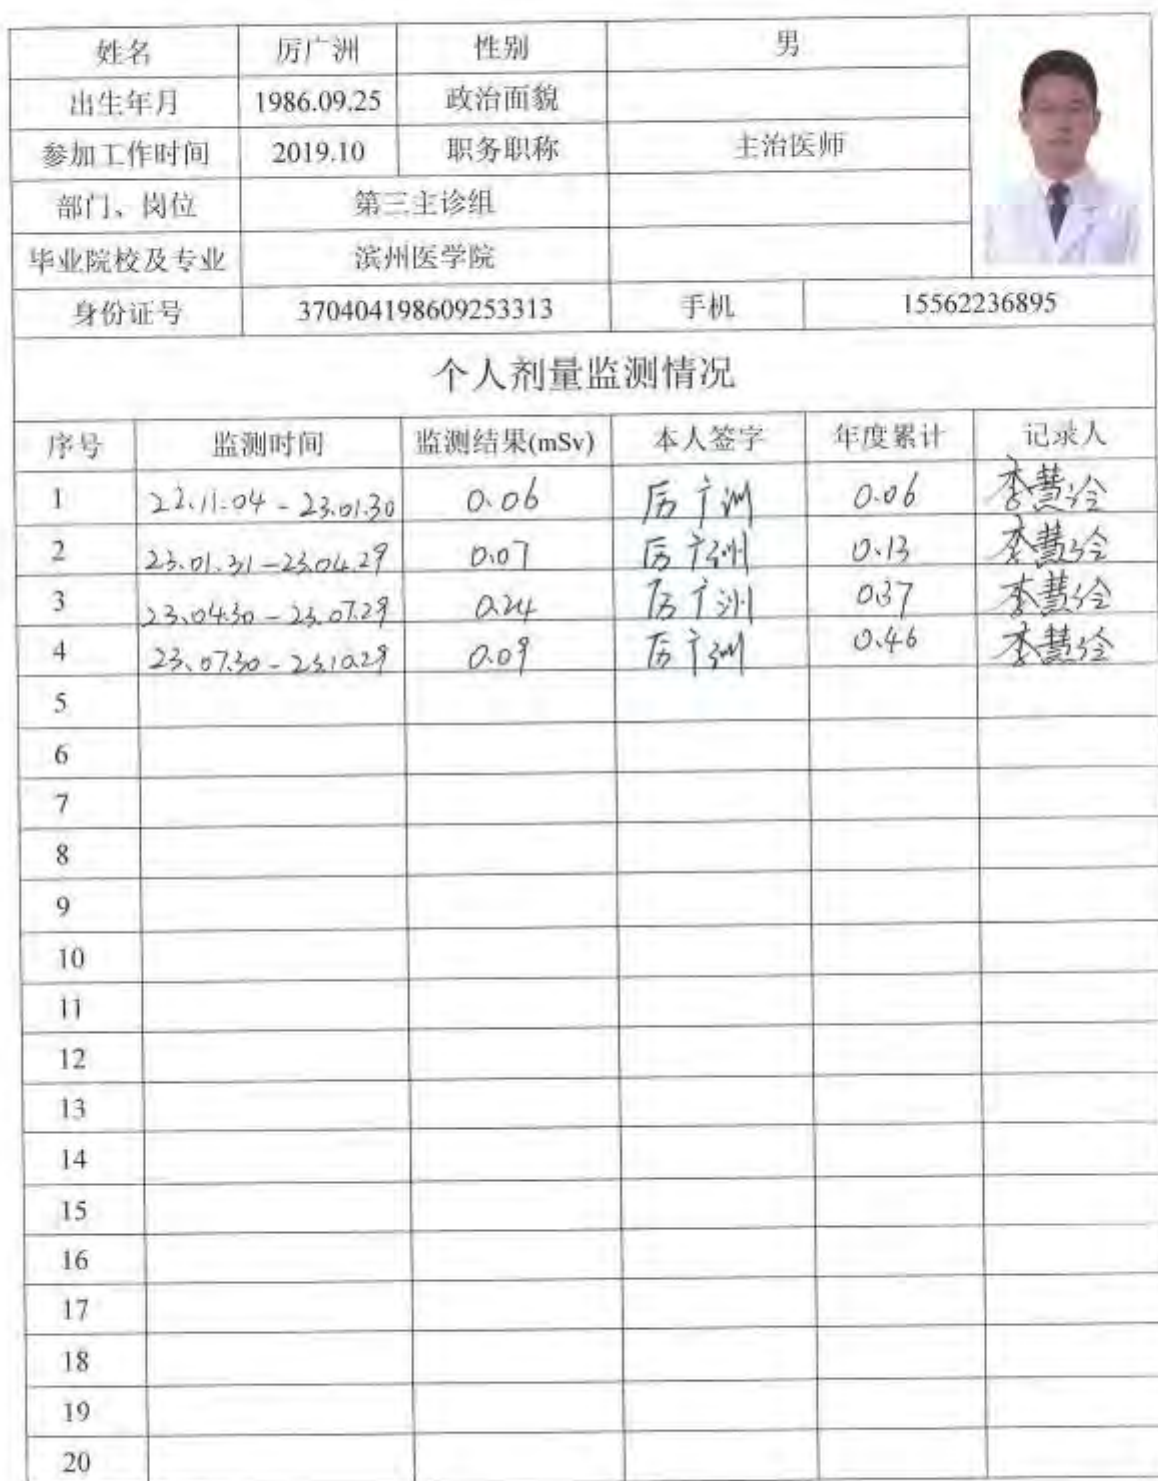 姓名 厉广洲 性别 男
出生年月 1986.09.25 政治面貌
参加工作时间 2019.10 职务职称 主治医师
部门、岗位 第三主诊组
毕业院校及专业 滨州医学院
身份证号 370404198609253313 手机 15562236895
个人剂量监测情况
序号 监测时间 监测结果(mSv) 本人签字 年度累计 记录人
1 22.11.04-23.01.30 0.06 厉广洲 0.06 李慧
2 23.01.31-23.04.29 0.07 厉广洲 0.13 李慧
3 23.04.30-23.07.29 0.24 厉广洲 0.37 李慧
4 23.07.30-23.10.29 0.09 厉广洲 0.46 李慧
5
6
7
8
9
10
11
12
13
14
15
16
17
18
19
20